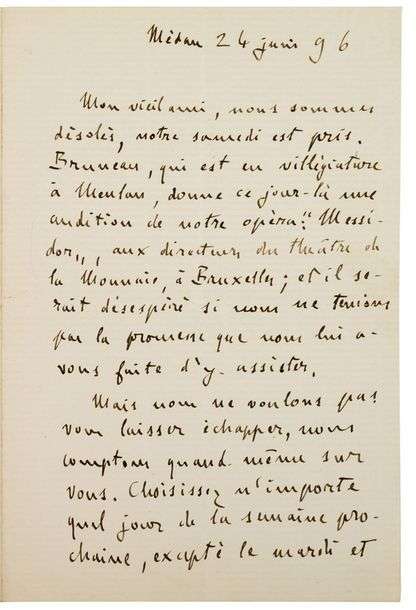 Médan 24 juin 96
Mon vieil ami, nous sommes
désolés, notre samedi est pris.
Bruneau, qui est en villégiature
à Meulan, donne ce jour-là une
audition de notre opéra : "Messi-
dor", aux directeurs du théâtre de
la Monnaie, à Bruxelles ; et il se-
rait désespéré si nous ne tenions
pas la promesse que nous lui a-
vons faite d'y assister.
Mais nous ne voulons pas
vous laisser échapper, nous
comptons quand même sur
vous. Choisissez n'importe
quel jour de la semaine pro-
chaine, excepté le mardi et